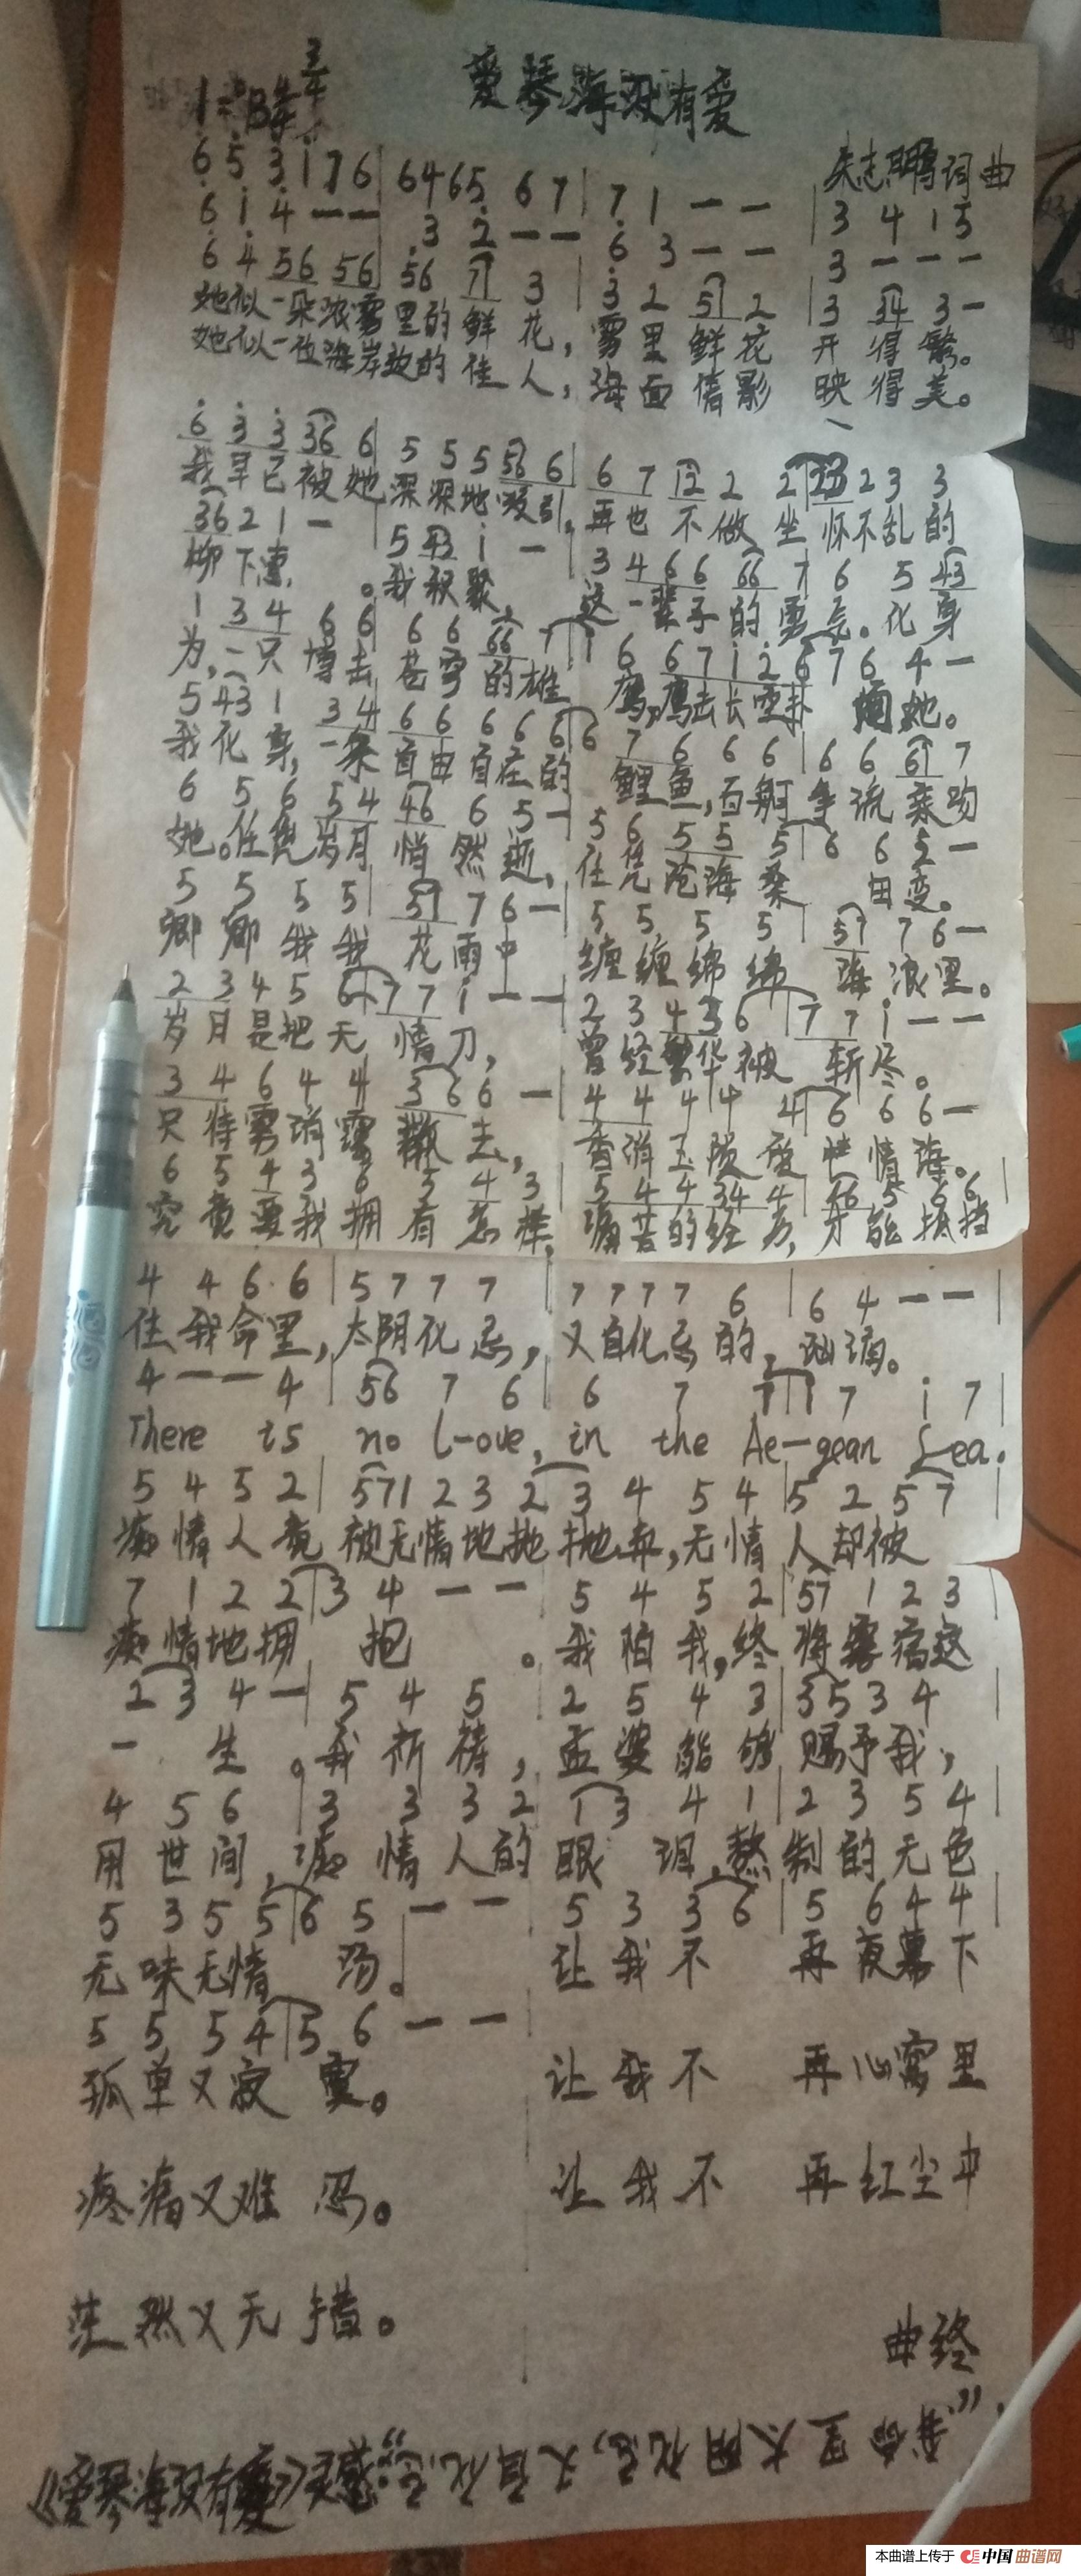 爱琴海没有爱
朱志鹏词曲
6 5 3 1 7 6 | 6 4 6 5 6 7 | 7 1 — — | 3 4 1 5
6 1 4 — — 3 2 — — 6 3 — — 3 — — —
6 4 56 56 | 56 71 3 | 3 2 51 2 | 3 34 3 —
她似一朵浓雾里的鲜花,雾里鲜花开得繁。
她似一位海岸边的佳人,海面倩影映得美。
6 3 3 36 6 | 5 5 5 56 6 | 6 7 12 2 2 | 23 2 3 3
我早已被她深深地吸引,再也不做坐怀不乱的
36 2 1 — | 5 43 1 — 3 4 6 6 66 7 6 5 43
柳下惠。我积聚,这一辈子的勇气。化身
1 3 4 6 6 | 6 6 66 7 | 1 6 6 7 1 2 6 7 6 4 —
为,一只搏击苍穹的雄鹰,鹰击长空扑她。
5 43 1 3 4 6 6 6 6 6 | 6 7 6 6 6 | 6 6 61 7
我化身,一条自由自在的鲤鱼,百舸争流亲吻
6 5 6 5 4 46 6 5 — | 5 6 5 5 5 | 6 6 5 —
她。任凭岁月悄然逝,任凭沧海桑田变。
5 5 5 5 | 51 7 6 — | 5 5 5 5 | 57 7 6 —
卿卿我我花雨中 缠缠绵绵海浪里。
2 3 4 5 6 | 7 7 1 — — | 2 3 4 3 6 | 7 7 1 — —
岁月是把无情刀,曾经繁华被斩尽。
3 4 6 4 4 3 6 6 — | 4 4 4 4 4 | 6 6 6 —
只待雾消霭散去,香消玉陨爱情海。
6 5 4 3 6 3 4 3 | 5 4 4 34 4 | 46 5 6 6 |
究竟要我拥有怎样,痛苦的经历,才能抵挡
4 4 6 6 | 5 7 7 7 | 7 7 7 7 6 | 6 4 — — |
住我命里,太阴化忌,又自化忌的,汕痛。
4 — — 4 | 56 7 6 | 6 7 7 | 1 7 1 7 |
There is no L-ove, in the Ae-gean Sea.
5 4 5 2 | 571 2 3 2 3 4 5 4 | 5 2 5 7 |
痴情人竟被无情地抛抛弃,无情人却被
7 1 2 2 | 3 4 — — 5 4 5 2 | 57 1 2 3 |
痴情地拥抱。我怕我,终将孬痛这
2 3 4 — | 5 4 5 2 5 4 3 | 3 5 3 4 |
一生。我祈祷,孟婆能够赐予我,
4 5 6 | 3 3 3 2 1 3 4 1 | 2 3 5 4 |
用世间,痴情人的眼泪,熬制的无色
5 3 5 5 | 6 5 — — 5 3 3 6 | 5 6 4 4 |
无味无情汤。让我不再夜幕下
5 5 5 4 | 5 6 — —
孤单又寂寞。 让我不再心窝里
疼痛又难忍。 让我不再红尘中
茫然又无措。
曲终
《爱琴海没有爱》
我命里太阴化忌,又自化忌
本曲谱上传于 中国曲谱网